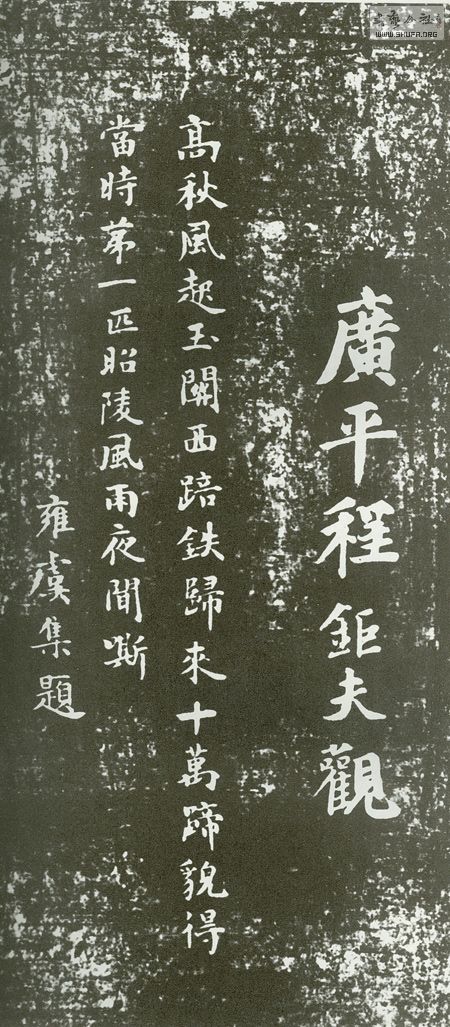 廣平程鉅夫觀
高秋風起玉關西踣鉄歸來十萬蹄貌得
當時苐一匹昭陵風雨夜聞嘶
雍虞集題
WWW.SHUFA.ORG